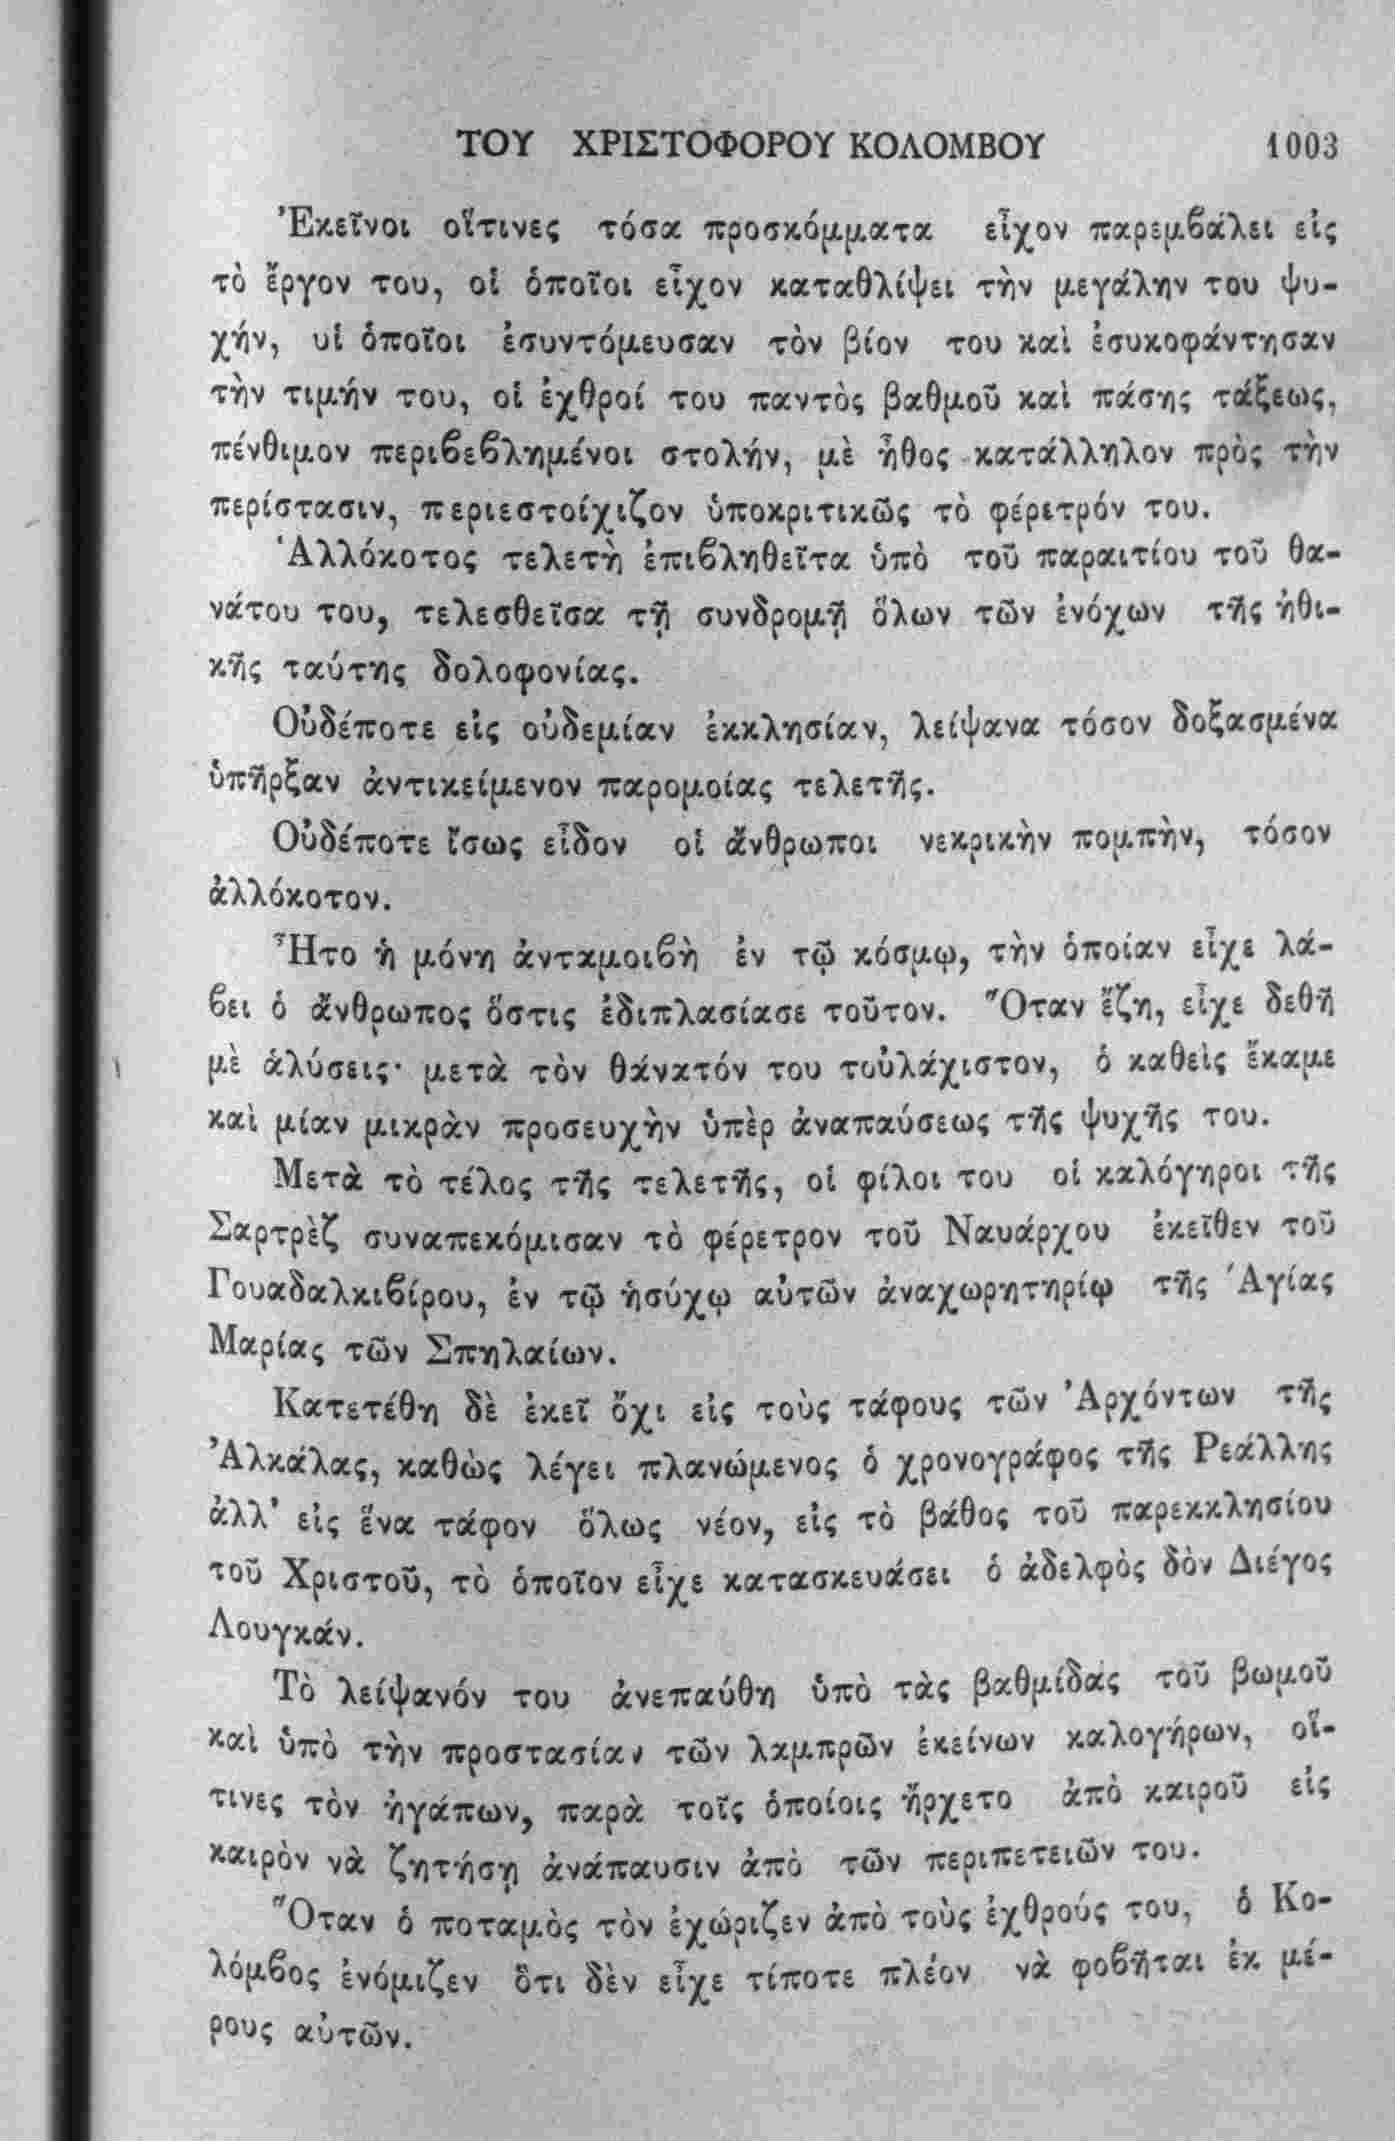 ΤΟΥ ΧΡΙΣΤΟΦΟΡΟΥ ΚΟΛΟΜΒΟΥ 1003
Ἐκεῖνοι οἵτινες τόσα προσκόμματα εἶχον παρεμβάλει εἰς
τὸ ἔργον του, οἱ ὁποῖοι εἶχον καταθλίψει τὴν μεγάλην του ψυ-
χήν, υἱ ὁποῖοι ἐσυντόμευσαν τὸν βίον του καὶ ἐσυκοφάντησαν
τὴν τιμήν του, οἱ ἐχθροί του παντὸς βαθμοῦ καὶ πάσης τάξεως,
πένθιμον περιβεβλημένοι στολήν, μὲ ἦθος κατάλληλον πρὸς τὴν
περίστασιν, περιεστοίχιζον ὑποκριτικῶς τὸ φέρετρόν του.
Ἀλλόκοτος τελετὴ ἐπιβληθεῖτα ὑπὸ τοῦ παραιτίου τοῦ θα-
νάτου του, τελεσθεῖσα τῇ συνδρομῇ ὅλων τῶν ἐνόχων τῆς ἠθι-
κῆς ταύτης δολοφονίας.
Οὐδέποτε εἰς οὐδεμίαν ἐκκλησίαν, λείψανα τόσον δοξασμένα
ὑπῆρξαν ἀντικείμενον παρομοίας τελετῆς.
Οὐδέποτε ἴσως εἶδον οἱ ἄνθρωποι νεκρικὴν πομπὴν, τόσον
ἀλλόκοτον.
Ἦτο ἡ μόνη ἀνταμοιβὴ ἐν τῷ κόσμῳ, τὴν ὁποίαν εἶχε λά-
βει ὁ ἄνθρωπος ὅστις ἐδιπλασίασε τοῦτον. Ὅταν ἔζη, εἶχε δεθῆ
μὲ ἁλύσεις· μετὰ τὸν θάνατόν του τοὐλάχιστον, ὁ καθεὶς ἔκαμε
καὶ μίαν μικρὰν προσευχὴν ὑπὲρ ἀναπαύσεως τῆς ψυχῆς του.
Μετὰ τὸ τέλος τῆς τελετῆς, οἱ φίλοι του οἱ καλόγηροι τῆς
Σαρτρὲζ συναπεκόμισαν τὸ φέρετρον τοῦ Ναυάρχου ἐκεῖθεν τοῦ
Γουαδαλκιβίρου, ἐν τῷ ἡσύχῳ αὐτῶν ἀναχωρητηρίῳ τῆς Ἁγίας
Μαρίας τῶν Σπηλαίων.
Κατετέθη δὲ ἐκεῖ ὄχι εἰς τοὺς τάφους τῶν Ἀρχόντων τῆς
Ἀλκάλας, καθὼς λέγει πλανώμενος ὁ χρονογράφος τῆς Ρεάλλης
ἀλλ’ εἰς ἕνα τάφον ὅλως νέον, εἰς τὸ βάθος τοῦ παρεκκλησίου
τοῦ Χριστοῦ, τὸ ὁποῖον εἶχε κατασκευάσει ὁ ἀδελφὸς δὸν Διέγος
Λουγκάν.
Τὸ λείψανόν του ἀνεπαύθη ὑπὸ τὰς βαθμίδας τοῦ βωμοῦ
καὶ ὑπὸ τὴν προστασίαν τῶν λαμπρῶν ἐκείνων καλογήρων, οἵ-
τινες τὸν ἠγάπων, παρὰ τοῖς ὁποίοις ἤρχετο ἀπὸ καιροῦ εἰς
καιρὸν νὰ ζητήσῃ ἀνάπαυσιν ἀπὸ τῶν περιπετειῶν του.
Ὅταν ὁ ποταμὸς τὸν ἐχώριζεν ἀπὸ τοὺς ἐχθρούς του, ὁ Κο-
λόμβος ἐνόμιζεν ὅτι δὲν εἶχε τίποτε πλέον νὰ φοβῆται ἐκ μέ-
ρους αὐτῶν.